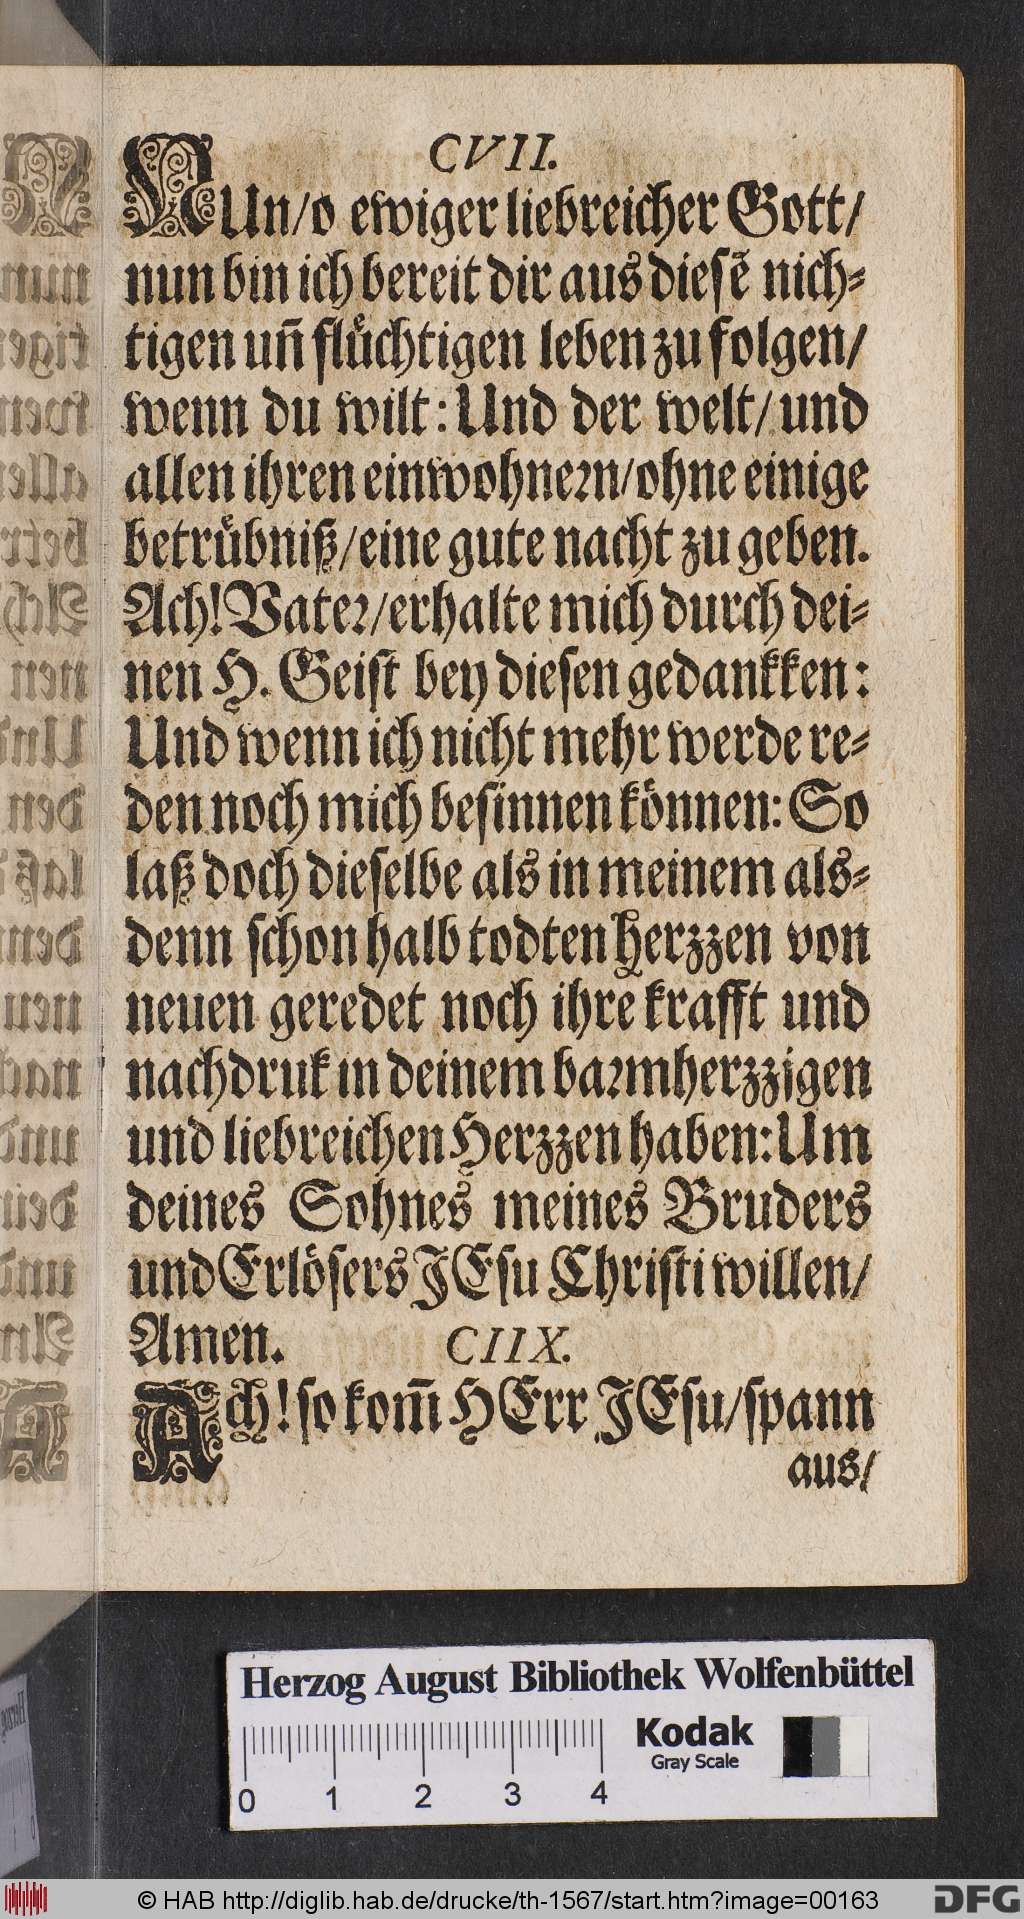 CVII.
NUn/o ewiger liebreicher Gott/
nun bin ich bereit dir aus diesẽ nich-
tigen uñ flüchtigen leben zu folgen/
wenn du wilt: Und der welt/ und
allen ihren einwohnern/ohne einige
betrübniß/eine gute nacht zu geben.
Ach! Vater/erhalte mich durch dei-
nen H. Geist bey diesen gedankken:
Und wenn ich nicht mehr werde re-
den noch mich besinnen können: So
laß doch dieselbe als in meinem als-
denn schon halb todten herzzen von
neuen geredet noch ihre krafft und
nachdruk in deinem barmherzzigen
und liebreichen Herzzen haben: Um
deines Sohnes meines Bruders
und Erlösers JEsu Christi willen/
Amen.
CIIX.
Ach! so kom̃ HErr JEsu/spann
aus/
Herzog August Bibliothek Wolfenbüttel
Kodak
Gray Scale
0 1 2 3 4
© HAB http://diglib.hab.de/drucke/th-1567/start.htm?image=00163
DFG